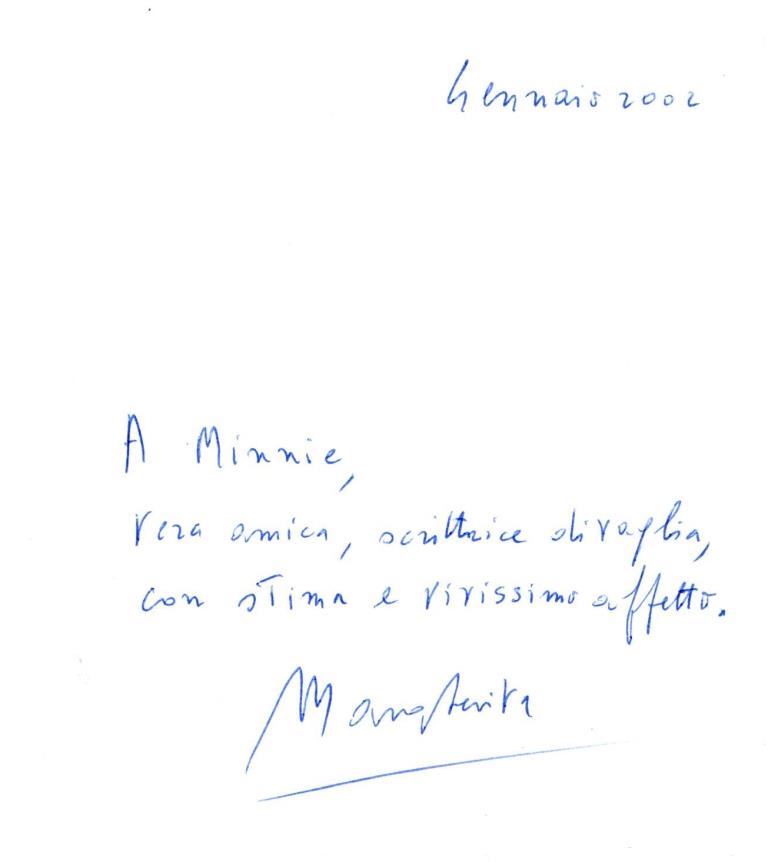 Gennaio 2002
A Minnie,
vera amica, scrittrice di vaglia,
con stima e vivissimo affetto.
Margherita